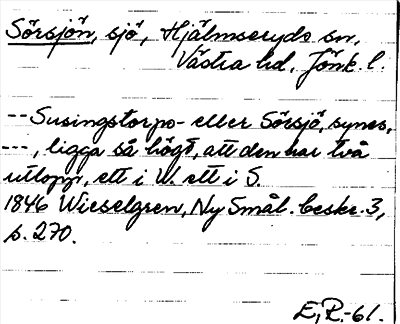 Sörsjön, sjö, Hjälmseryds sn,
Västra hd, Jönk. l.
--Susingstorps- eller Sörsjö, synes,
---, ligga så högt, att den har två
utlopp, ett i W. ett i S.
1846 Wieselgren, Ny Smål. beskr. 3,
s. 270.
E, P.-61.